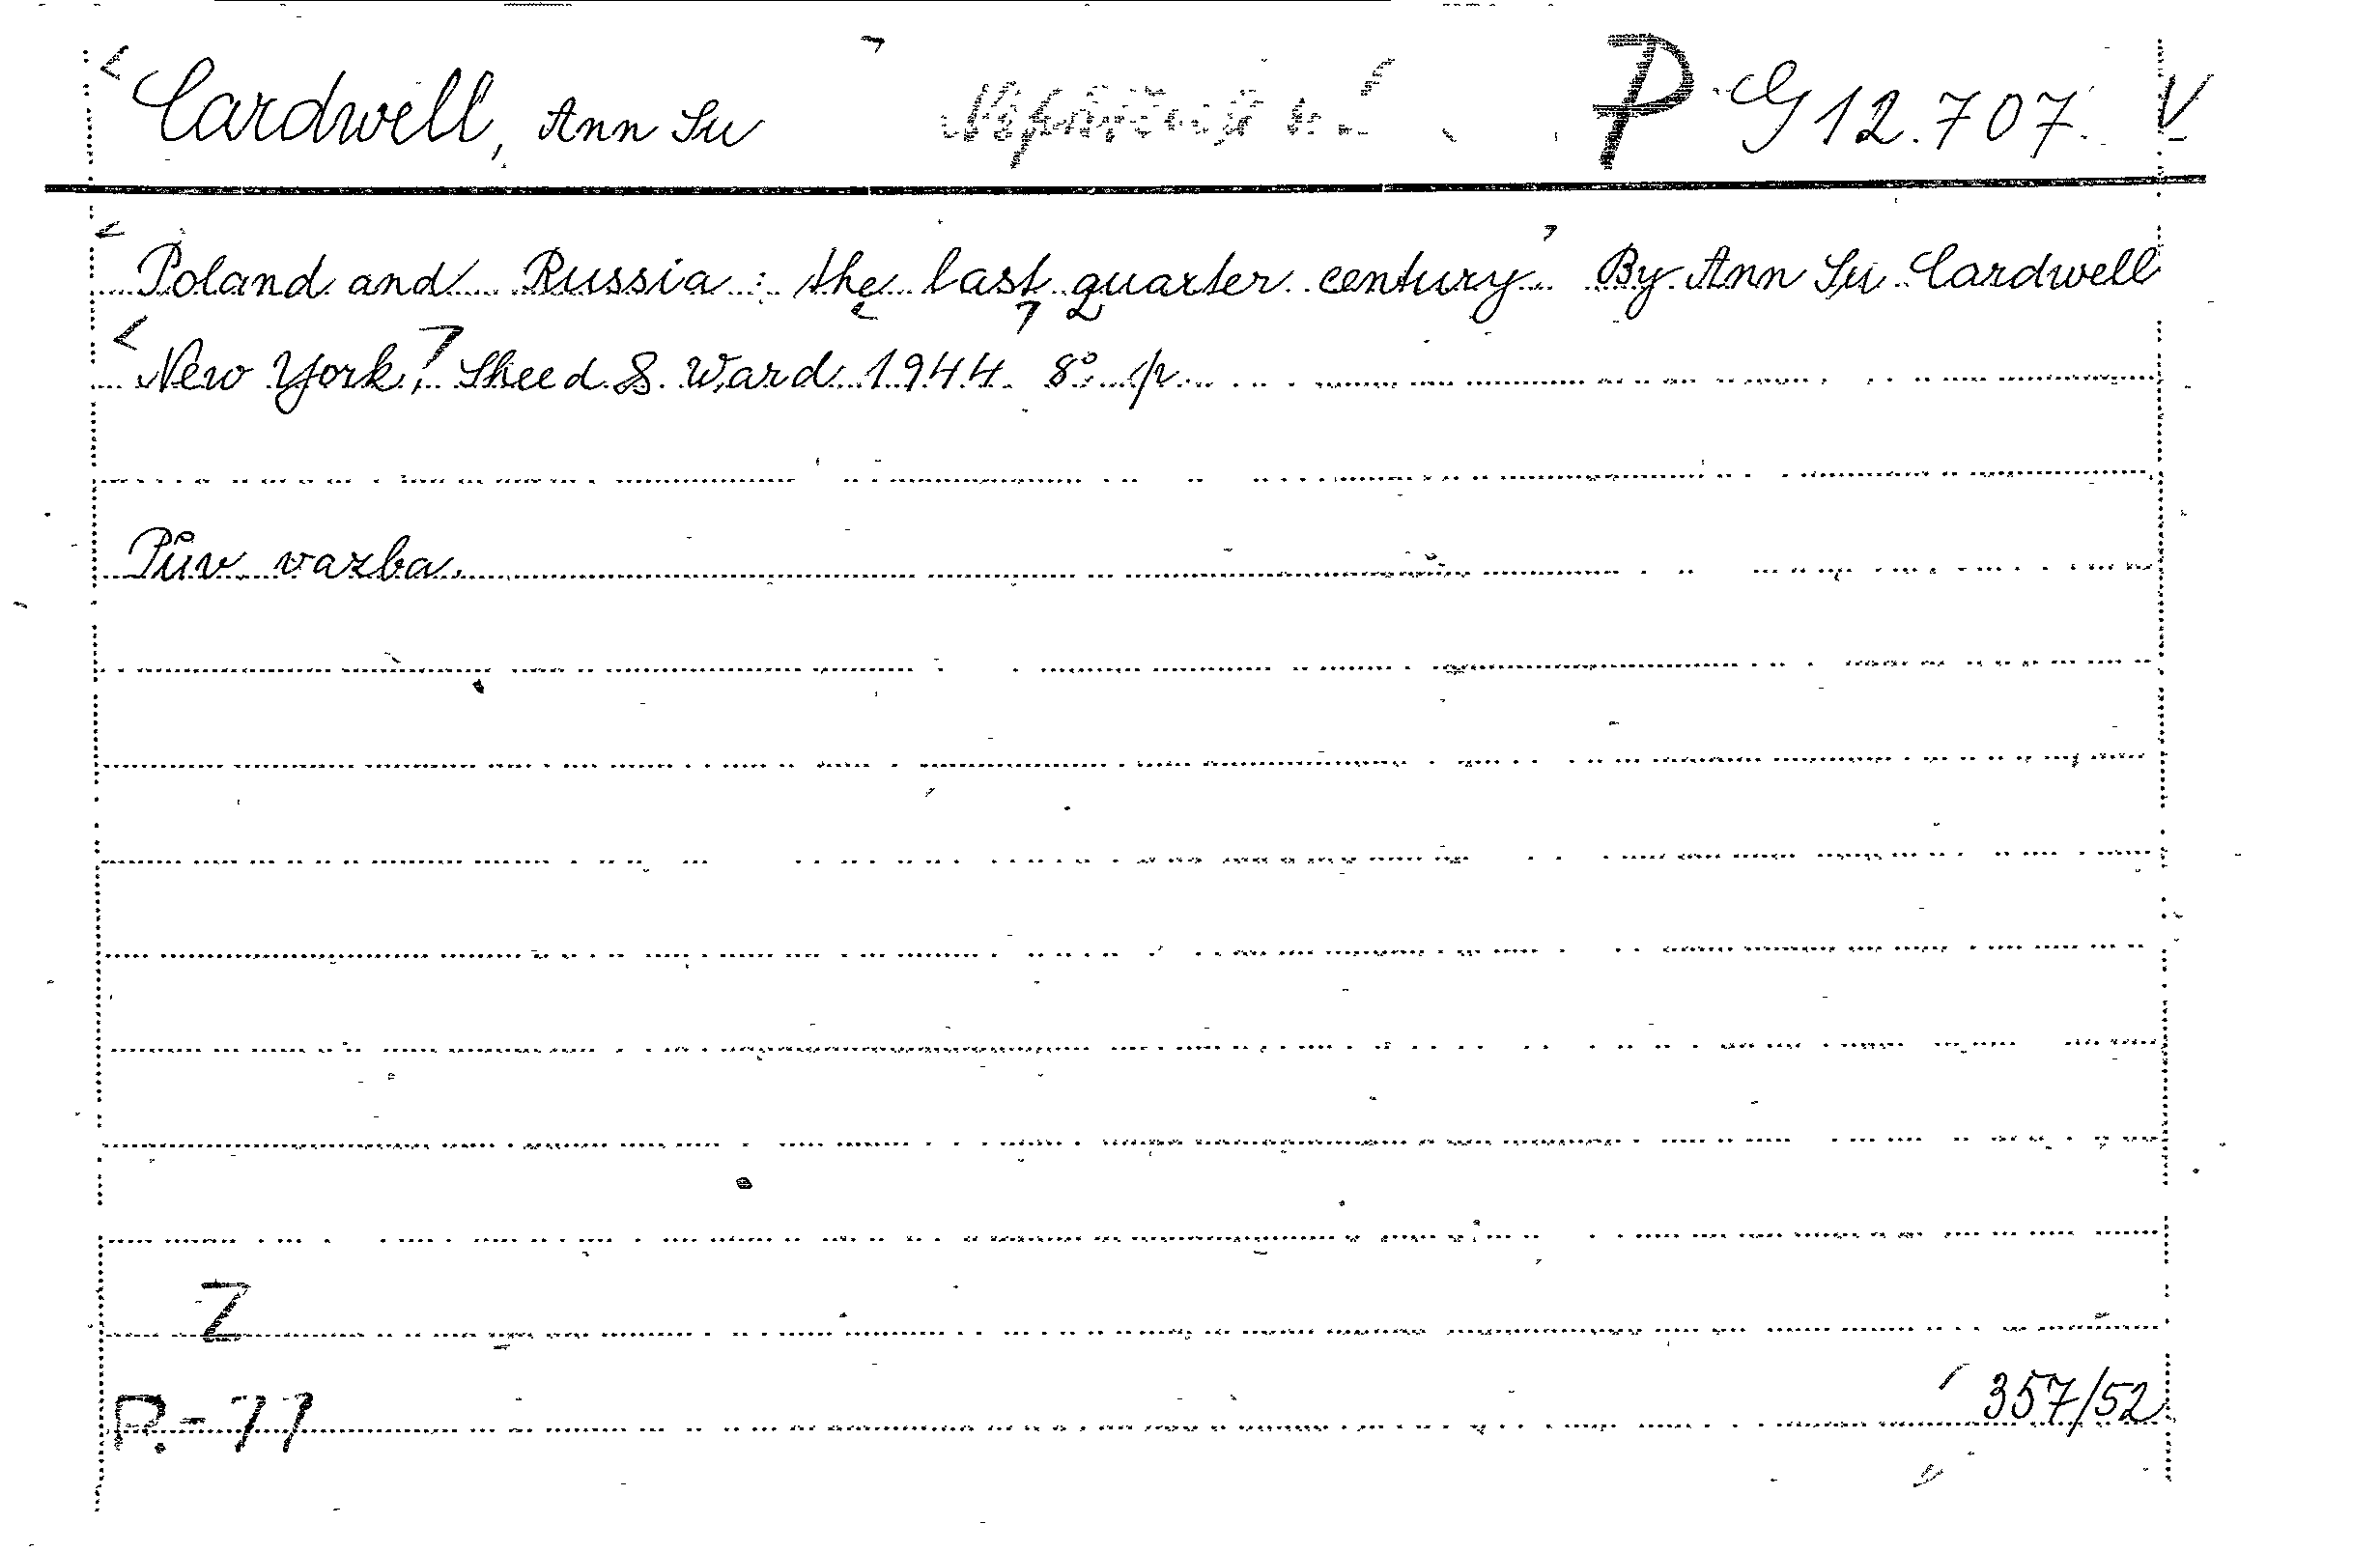 Cardwell, Ann Su P G 12.707. V
Poland and Russia : the last quarter century. By Ann Su Cardwell
New York, Sheed & Ward 1944 8° p
Pův vazba.
Z
P. - 77
357/52